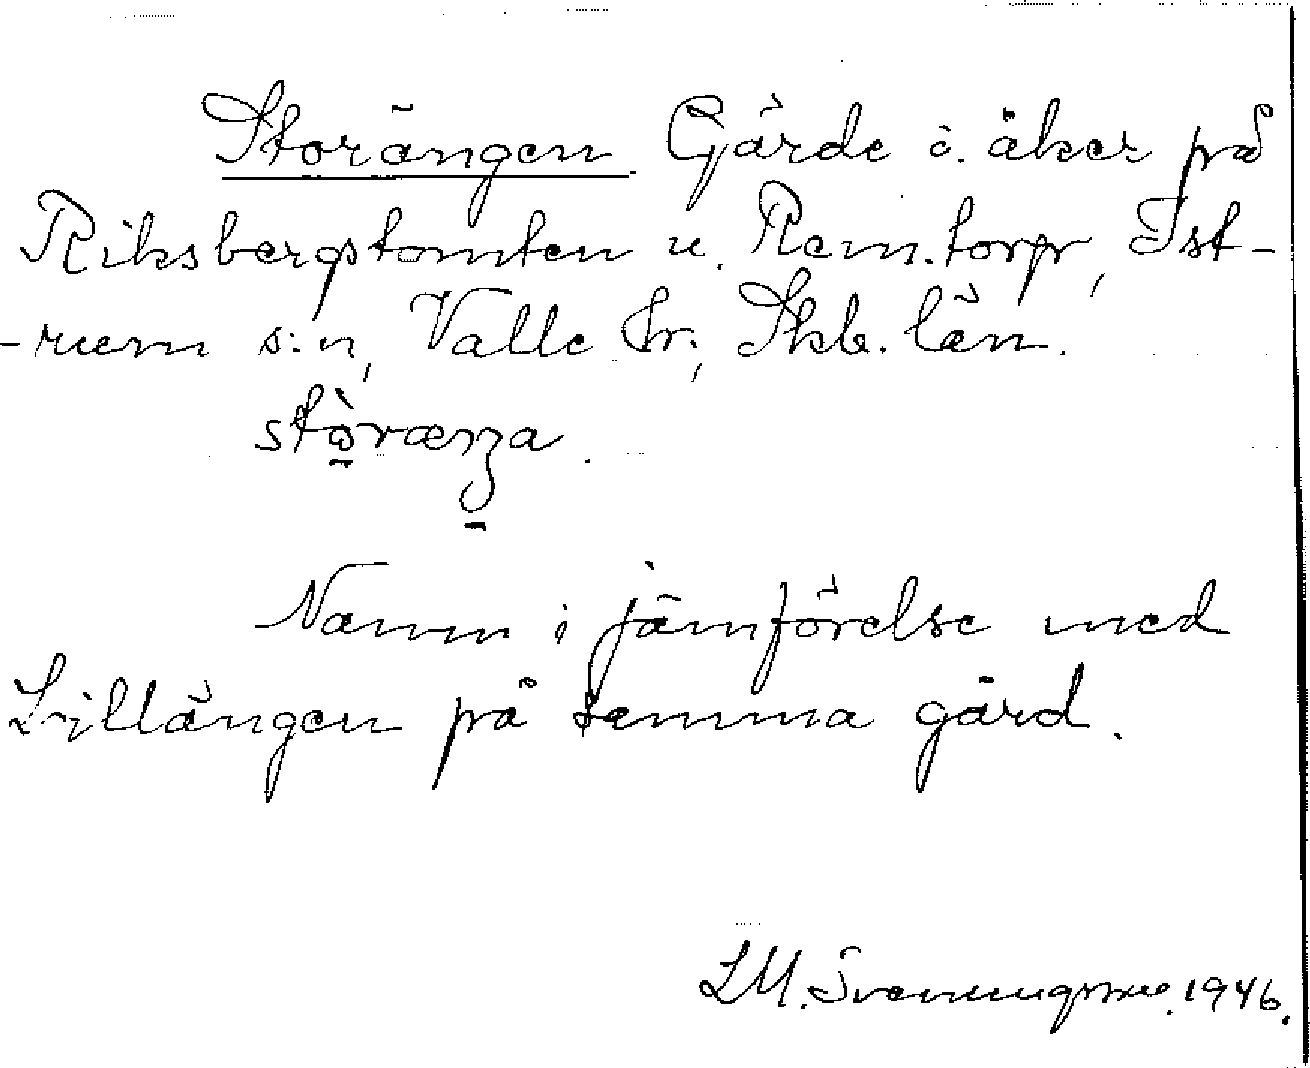 Storängen Gärde o. åker på
Riksbergstomten u. Rem.torp, Ist-
-rum s:n, Valle hr., Skb. län.
Namn i jämförelse med
Lillängen på samma gård.
L M. Svenungsson. 1946.